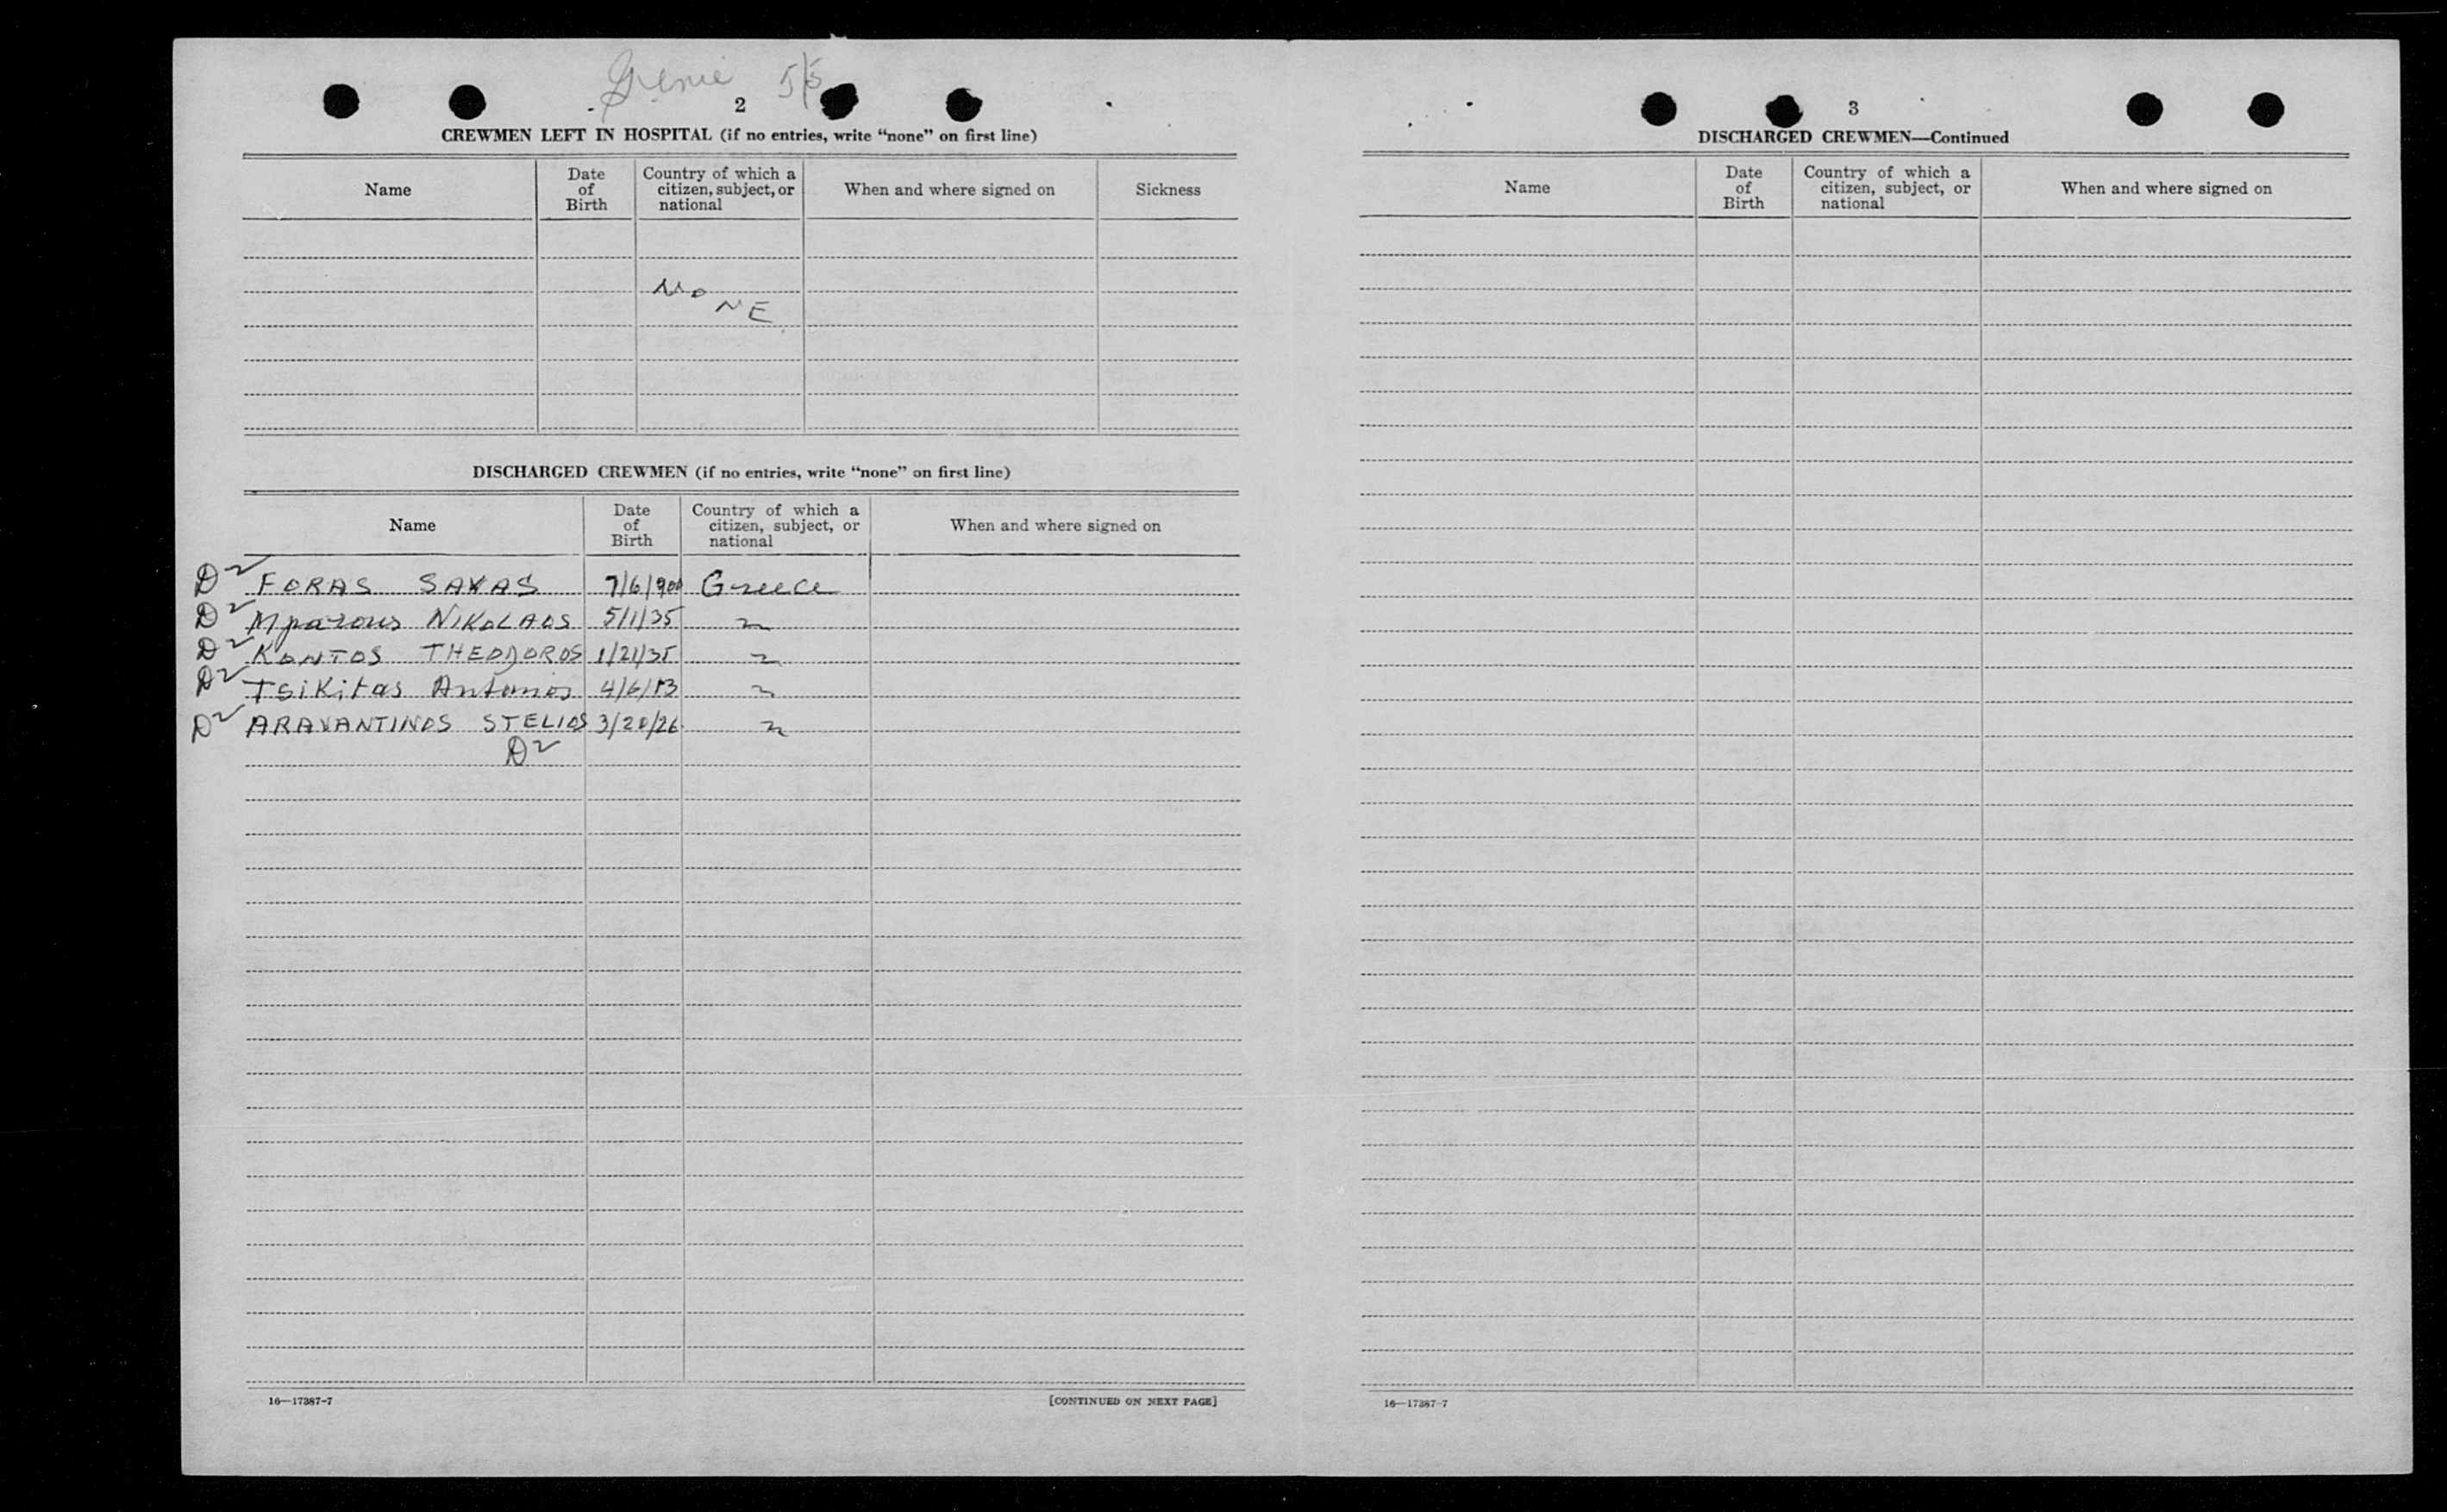 Genie 5/5
2
CREWMEN LEFT IN HOSPITAL (if no entries, write "none" on first line)
Name
Date of Birth
Country of which a citizen, subject, or national
When and where signed on
Sickness
NONE
DISCHARGED CREWMEN (if no entries, write "none" on first line)
Name
Date of Birth
Country of which a citizen, subject, or national
When and where signed on
D2 FORAS SAVAS 7/6/900 Greece
D2 Mparous NIKOLAOS 5/1/35 "
D2 KONTOS THEODOROS 1/21/35 "
D2 TsiKitas Antonios 4/6/13 "
D2 ARAVANTINOS STELIOS 3/20/26 "
D2
16—17387-7
[CONTINUED ON NEXT PAGE]
3
DISCHARGED CREWMEN—Continued
Name
Date of Birth
Country of which a citizen, subject, or national
When and where signed on
16—17387-7